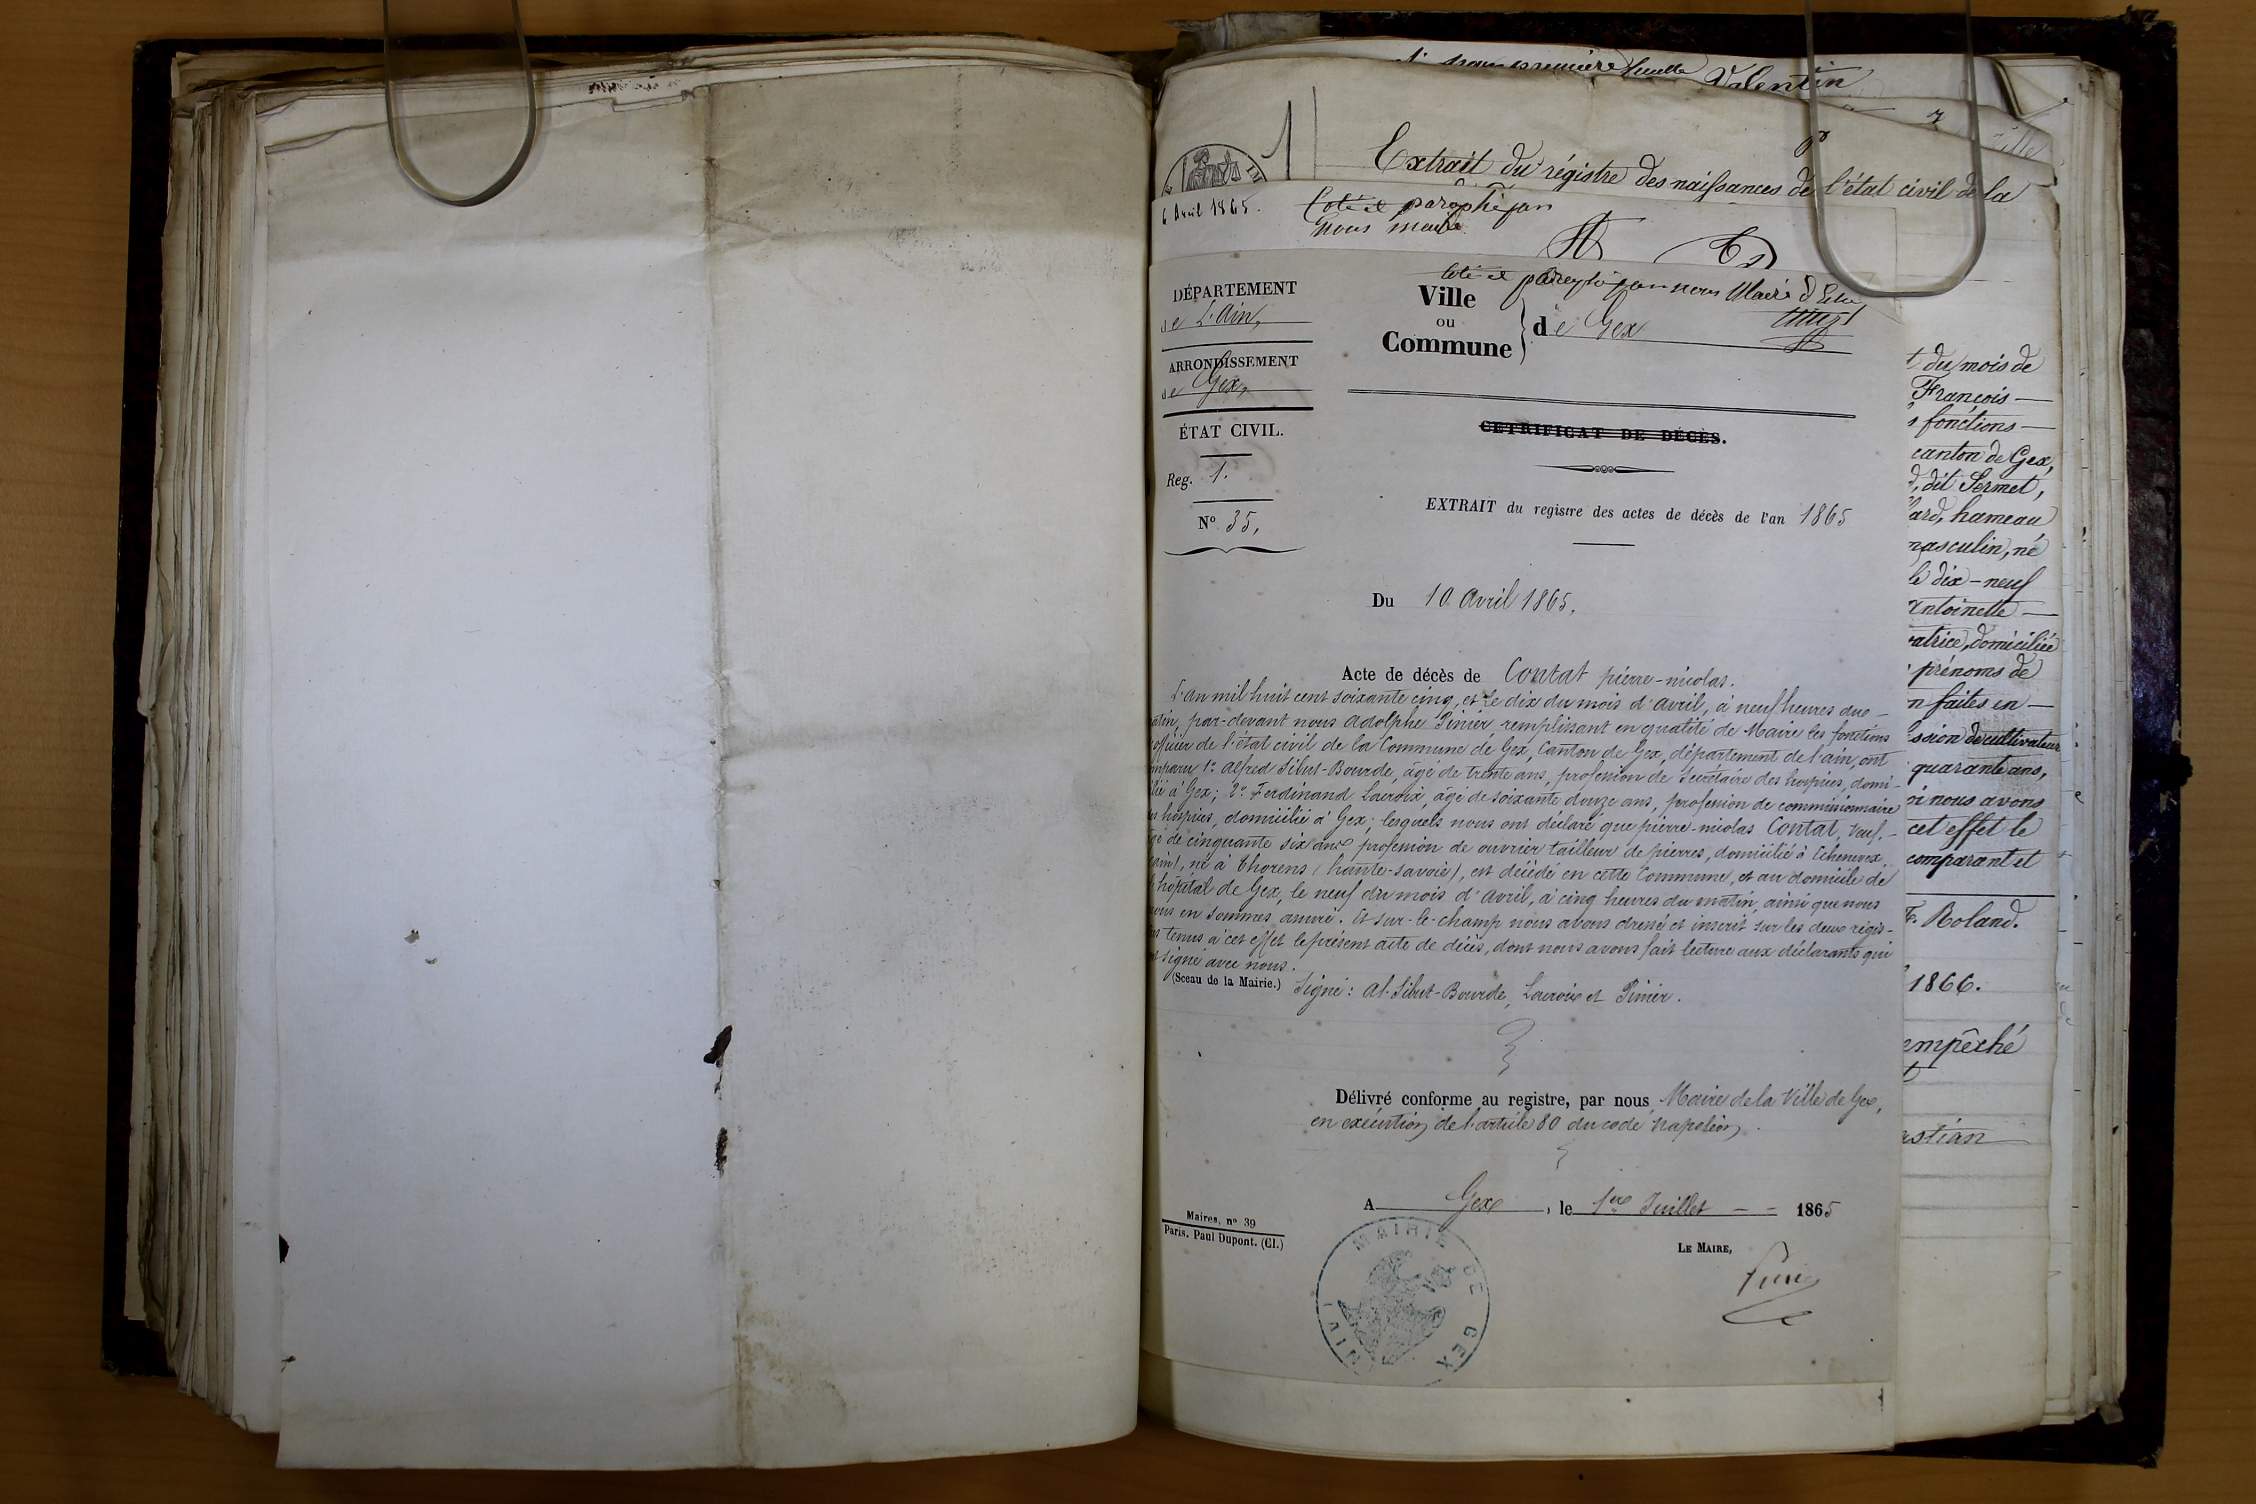 première feuille Valentin
Extrait du régistre des naissances de l'état civil de la
6 Avril 1865.
Coté et paraphé par
nous maire
coté et paraphé par nous Maire d'
DÉPARTEMENT
de L'Ain,
ARRONDISSEMENT
de Gex,
ÉTAT CIVIL.
Reg. 1.
Nº 35,
Ville
ou
Commune
de Gex
CETRIFICAT DE DÉCÈS.
EXTRAIT du registre des actes de décès de l'an 1865
Du 10 Avril 1865.
Acte de décès de Contat pierre-nicolas.
L'an mil huit cent soixante cinq, et le dix du mois d'avril, à neuf heures du-
atin, par-devant nous Adolphe Pinier remplissant en qualité de Maire les fonctions
officier de l'état civil de la Commune de Gex, Canton de Gex, département de l'ain, ont
mparu 1º Alfred Sibut-Bourde, âgé de trente ans, profession de Secrétaire des hospices, domi-
lié à Gex; 2º Ferdinand Lacroix, âgé de soixante douze ans, profession de commissionnaire
es hospices, domicilié à Gex; lesquels nous ont déclaré que pierre-nicolas Contat, veuf,-
gé de cinquante six ans profession de ouvrier tailleur de pierres, domicilié à Echenevex,
ain), né à Thorens (haute-savoie), est décédé en cette Commune, et au domicile de
l'hôpital de Gex, le neuf du mois d'avril, à cinq heures du matin, ainsi que nous
nous en sommes assuré. Et sur-le-champ nous avons dressé et inscrit sur les deux régis-
es tenus à cet effet le présent acte de décès, dont nous avons fait lecture aux déclarants qui
nt signé avec nous.
(Sceau de la Mairie.) Signé: Al. Sibut-Bourde, Lacroix et Pinier.
Délivré conforme au registre, par nous Maire de la Ville de Gex,
en exécution de l'article 80 du code Napoléon.
A Gex, le 1er Juillet - - 1865
Maires, nº 39
Paris. Paul Dupont. (Cl.)
LE MAIRE,
MAIRIE DE GEX
(AIN)
t du mois de
François -
s fonctions -
canton de Gex,
, dit Sermet,
ard, hameau
masculin, né
le dix-neuf
Antoinette -
atrice, domiciliée
prénoms de
n faites en -
ssion de cultivateur
quarante ans,
oi nous avons
cet effet le
comparant et
F. Roland.
1866.
empêché
astian